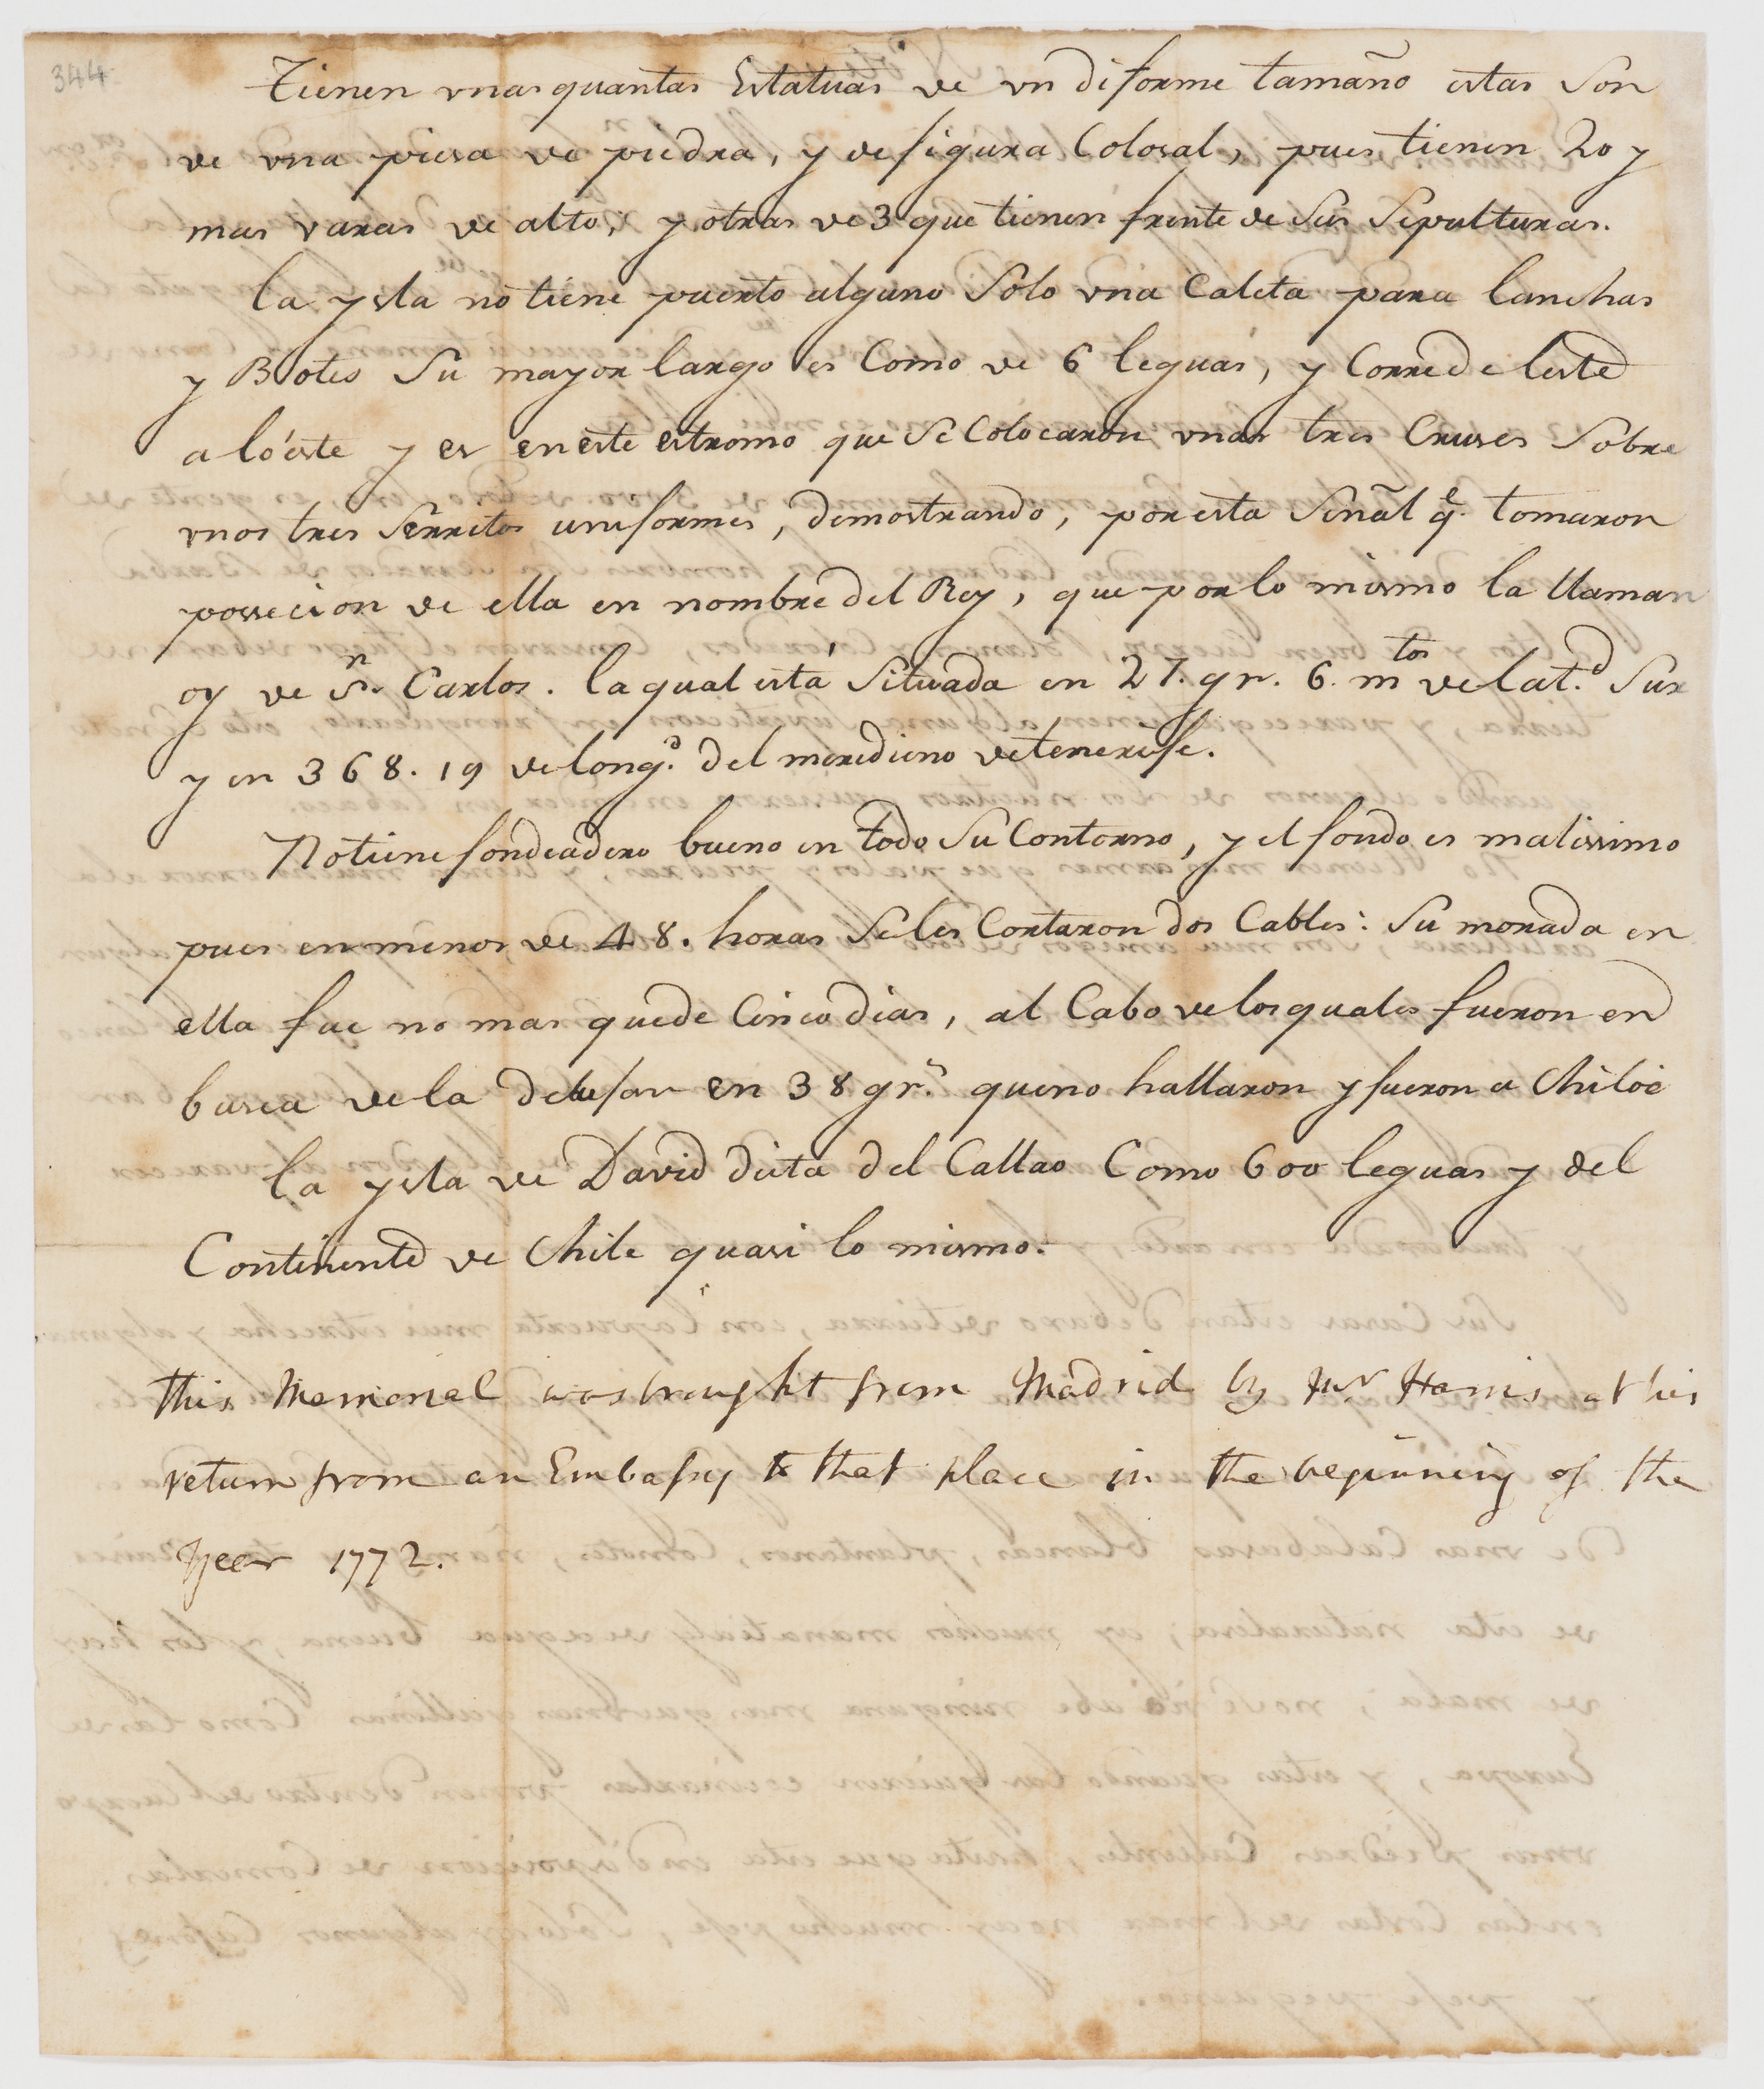 344
Tienen vnas quantas Estatuas de vn diforme tamaño estas son
de vna piesa de piedra, y de figura Colosal, pues tienen 20 y
mas varas de alto, y otras de 3 que tienen frente de sus Sepulturas.
la ysla no tiene puerto alguno Solo vna Caleta para lanchas
y Botes Su mayor largo es Como de 6 leguas, y Corre de leste
a lóeste y es en este estromo que se Colocaron vnas tres Cruses Sobre
vnos tres Serritos uniformes, demostrando, por esta Señal q.e tomaron
possecion de ella en nombre del Rey, que por lo mismo la llaman
oy de S.n Carlos. la qual está Situada en 27. gr. 6. m.tos de lat.d Sur
y en 368. 19 de long.d del meredieno de tenerife.
No tiene fondeadero bueno en todo Su Contorno, y el fondo es malissimo
pues en menos de 48. horas Se les Cortaron dos Cables: Su morada en
ella fue no mas que de Cinco dias, al Cabo de los quales fueron en
busca de la en 38 gr.s que no hallaron y fueron a Chiloè
La ysla de David dista del Callao Como 600 leguas y del
Continente de Chile quasi lo mismo.
this Memorial was brought from Madrid by Mr Harris at his
return from an Embassy to that place in the beginning of the
Year 1772.